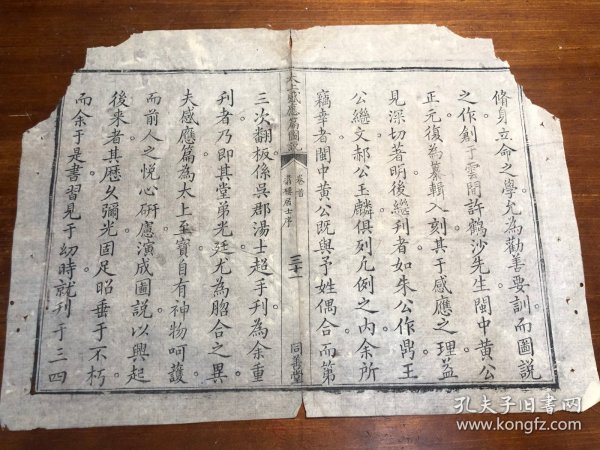 脩身立命之學尤為勸善要訓而圖說
之作創于雲間許鶴沙先生閩中黄公
正元復為纂輯入刻其于感應之理益
見深切著明後繼刋者如朱公作鼎王
公繼文郝公玉麟俱列凢例之内余所
竊幸者閩中黄公既與予姓偶合而第
太上感應篇圖說
卷首
居士序
三十一
同善堂
三次翻板係吳郡湯士超手刋為余重
刋者乃即其堂弟光廷尤為脗合之異
夫感應篇為太上至寳自有神物呵護
而前人之悦心研應演成圖說以興起
後來者其歷久彌光固足昭垂于不朽
而余于是書習見于幼時就刋于三四
孔夫子旧书网
www.kongfz.com